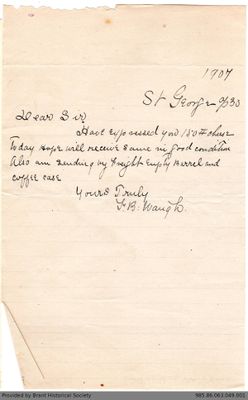 1907
St George 9/30
Dear Sir,
Have expressed you 150# cheese
Today hope will receive same in good condition
Also am sending by freight empty barrel and
coffee case
Yours Truly
F.B. Waugh.
Provided by Brant Historical Society
985.86.063.049.001